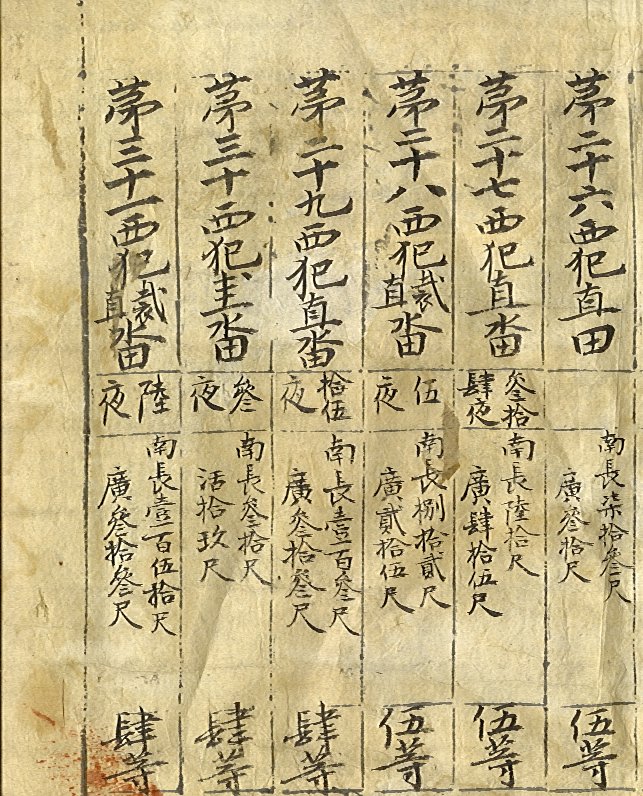 苐二十六西犯直田
南長柒拾叄尺
廣叄拾尺
伍等
苐二十七西犯直畓
叄拾
肆夜
南長陸拾尺
廣肆拾伍尺
伍等
苐二十八西犯裁直畓
伍
夜
南長捌拾貳尺
廣貳拾伍尺
伍等
苐二十九西犯直畓
拾伍
夜
南長壹百叄尺
廣叄拾叄尺
肆等
苐三十西犯圭畓
叄
夜
南長叄拾尺
活拾玖尺
肆等
苐三十一西犯裁直畓
陸
夜
南長壹百伍拾尺
廣叄拾叄尺
肆等